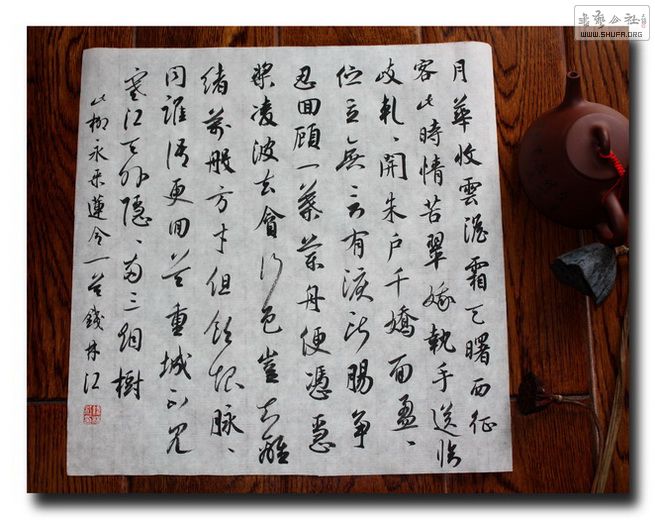 書藝公社
WWW.SHUFA.ORG
月華收雲澹霜天曙西征
客此時情苦翠娥執手送臨
歧軋、開朱戶千嬌面盈、
佇立無言有淚斷腸爭
忍回顧一葉蘭舟便憑急
槳凌波去貪行色豈知離
緒萬般方寸但飲恨脈、
同誰語更回首重城不見
寒江天外隱、兩三烟樹
此柳永采蓮令一首錢林江